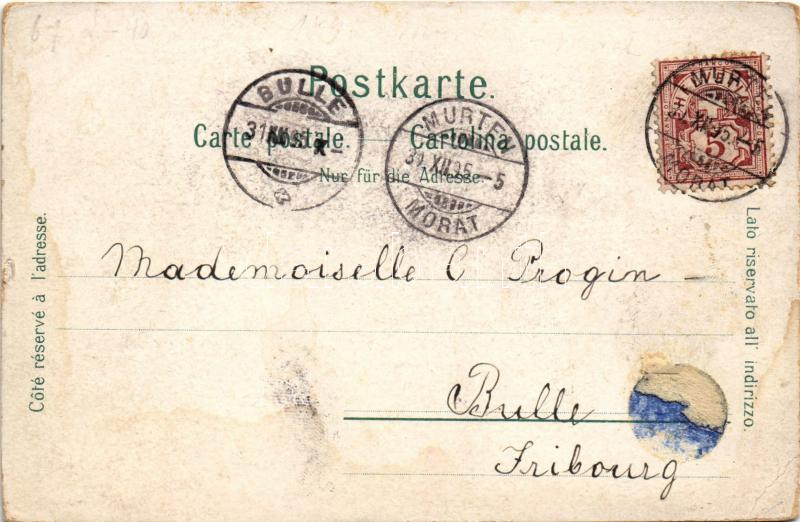 Postkarte.
Carte postale. — Cartolina postale.
Nur für die Adresse.
BULLE
MURTEN
31.XII.95.-5
MORAT
MURTEN
XII.95.-5
MORAT
5
Côté réservé à l'adresse.
Lato riservato all' indirizzo.
Mademoiselle C Progin -
Bulle
Fribourg